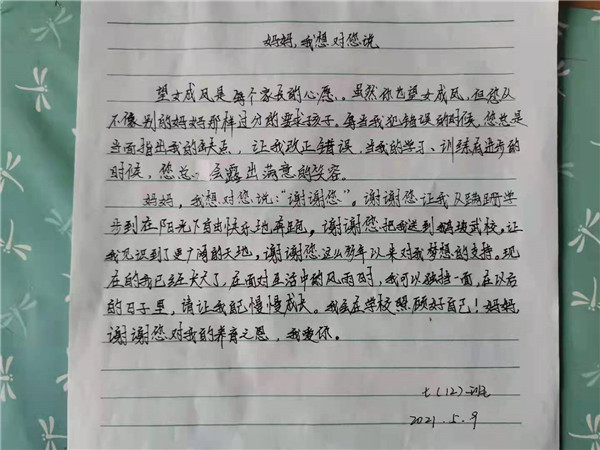 妈妈,我想对您说
望女成凤是每个家长的心愿。虽然你也望女成凤,但您从
不像别的妈妈那样过分的要求孩子。每当我犯错误的时候,您总是
当面指出我的缺点,让我改正错误,当我的学习、训练有进步的
时候,您总会露出满意的笑容。
妈妈,我想对您说:“谢谢您”。谢谢您让我从蹒跚学
步到在阳光下自由快乐地奔跑。谢谢您把我送到鹅坡武校,让
我见识到了更广阔的天地,谢谢您这么多年以来对我梦想的支持。现
在的我已经长大了,在面对生活中的风雨时,我可以独挡一面,在以后
的日子里,请让我自己慢慢成长。我会在学校照顾好自己!妈妈,
谢谢您对我的养育之恩,我爱你。
七(12)班
2021.5.9